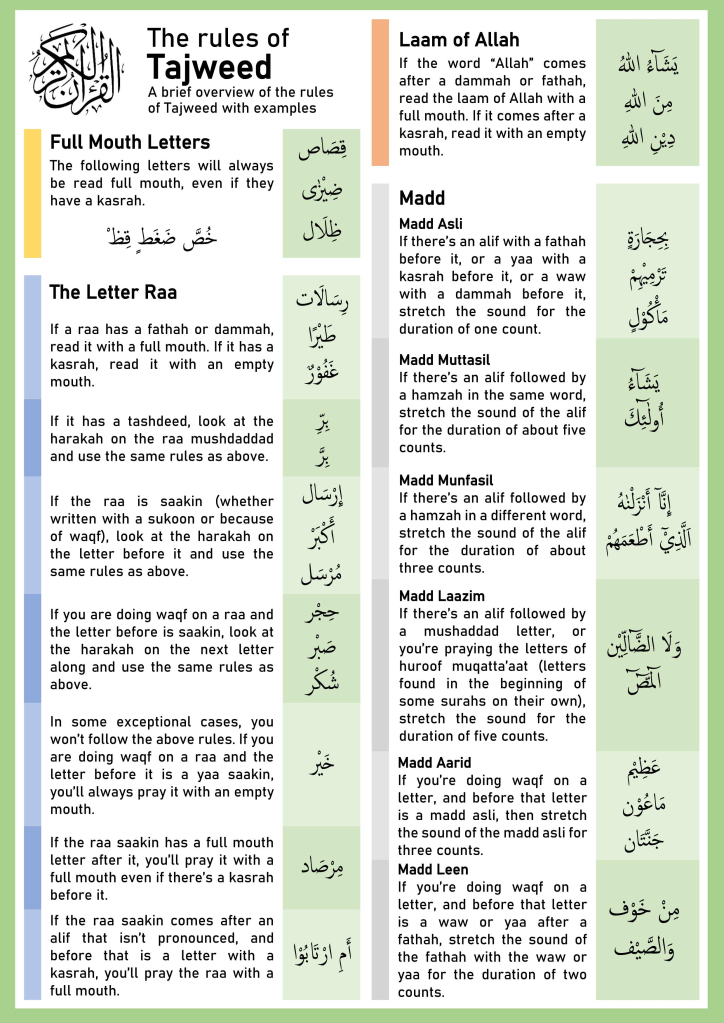 القرآن الكريم
The rules of
Tajweed
A brief overview of the rules
of Tajweed with examples
Full Mouth Letters
The following letters will always
be read full mouth, even if they
have a kasrah.
خُصَّ ضَغَطٍ قِظْ
قِصَاص
ضِيْزٰى
ظِلَال
The Letter Raa
If a raa has a fathah or dammah,
read it with a full mouth. If it has a
kasrah, read it with an empty
mouth.
رِسَالَات
طَيْرًا
غَفُوْرٌ
If it has a tashdeed, look at the
harakah on the raa mushdaddad
and use the same rules as above.
بِرِّ
بِرَّ
If the raa is saakin (whether
written with a sukoon or because
of waqf), look at the harakah on
the letter before it and use the
same rules as above.
إِرْسَال
أَكْبَرْ
مُرْسَل
If you are doing waqf on a raa and
the letter before is saakin, look at
the harakah on the next letter
along and use the same rules as
above.
حِجْر
صَبْر
شُكْر
In some exceptional cases, you
won't follow the above rules. If you
are doing waqf on a raa and the
letter before it is a yaa saakin,
you'll always pray it with an empty
mouth.
خَيْر
If the raa saakin has a full mouth
letter after it, you'll pray it with a
full mouth even if there's a kasrah
before it.
مِرْصَاد
If the raa saakin comes after an
alif that isn't pronounced, and
before that is a letter with a
kasrah, you'll pray the raa with a
full mouth.
أَمِ ارْتَابُوْا
Laam of Allah
If the word “Allah” comes
after a dammah or fathah,
read the laam of Allah with a
full mouth. If it comes after a
kasrah, read it with an empty
mouth.
يَشَآءُ اللهُ
مِنَ اللهِ
دِيْنِ اللهِ
Madd
Madd Asli
If there's an alif with a fathah
before it, or a yaa with a
kasrah before it, or a waw
with a dammah before it,
stretch the sound for the
duration of one count.
بِحِجَارَةٍ
تَرْمِيْهِمْ
مَاْكُوْلٍ
Madd Muttasil
If there's an alif followed by
a hamzah in the same word,
stretch the sound of the alif
for the duration of about five
counts.
يَشَآءُ
أُولٰٓئِكَ
Madd Munfasil
If there's an alif followed by
a hamzah in a different word,
stretch the sound of the alif
for the duration of about
three counts.
إِنَّآ أَنْزَلْنٰهُ
اَلَّذِيْٓ أَطْعَمَهُمْ
Madd Laazim
If there's an alif followed by
a mushaddad letter, or
you're praying the letters of
huroof muqatta'aat (letters
found in the beginning of
some surahs on their own),
stretch the sound for the
duration of five counts.
وَلَا الضَّآلِّيْن
الٓمّٓصٓ
Madd Aarid
If you're doing waqf on a
letter, and before that letter
is a madd asli, then stretch
the sound of the madd asli for
three counts.
عَظِيْم
مَاعُوْن
جَنَّتَان
Madd Leen
If you're doing waqf on a
letter, and before that letter
is a waw or yaa after a
fathah, stretch the sound of
the fathah with the waw or
yaa for the duration of two
counts.
مِنْ خَوْف
وَالصَّيْف